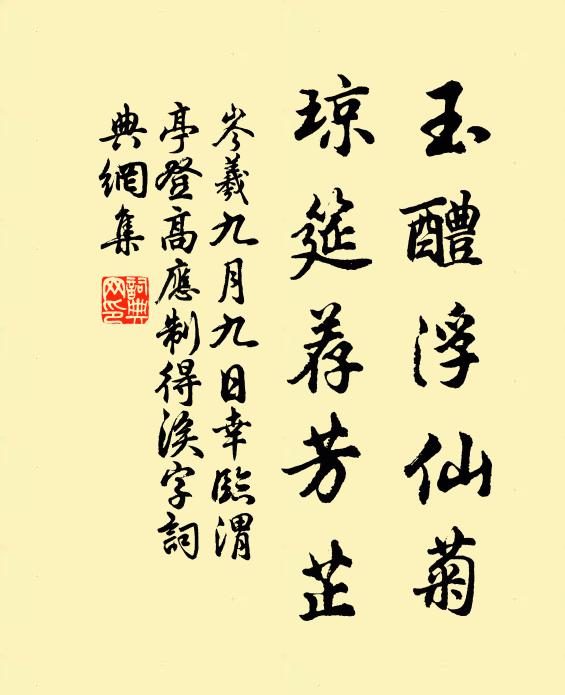 玉醴浮仙菊
琼筵荐芳芷
岑羲九月九日幸臨渭
亭登高應制得涘字詞
典網集
詞典網印